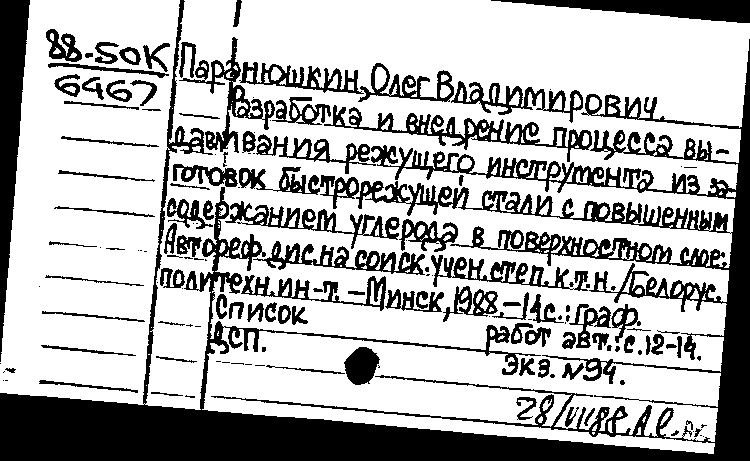 88-5OK
6467
Паранюшкин, Олег Владимирович.
Разработка и внедрение процесса вы-
давливания режущего инструмента из за-
готовок быстрорежущей стали с повышенным
содержанием углерода в поверхностном слое:
Автореф. дис. на соиск. учен. степ. к.т.н. /Белорус.
политехн. ин-т. – Минск, 1988. – 14с.: граф.
Список работ авт.: с. 12-14.
ДСП. экз. N94.
28/VII88. А.С.